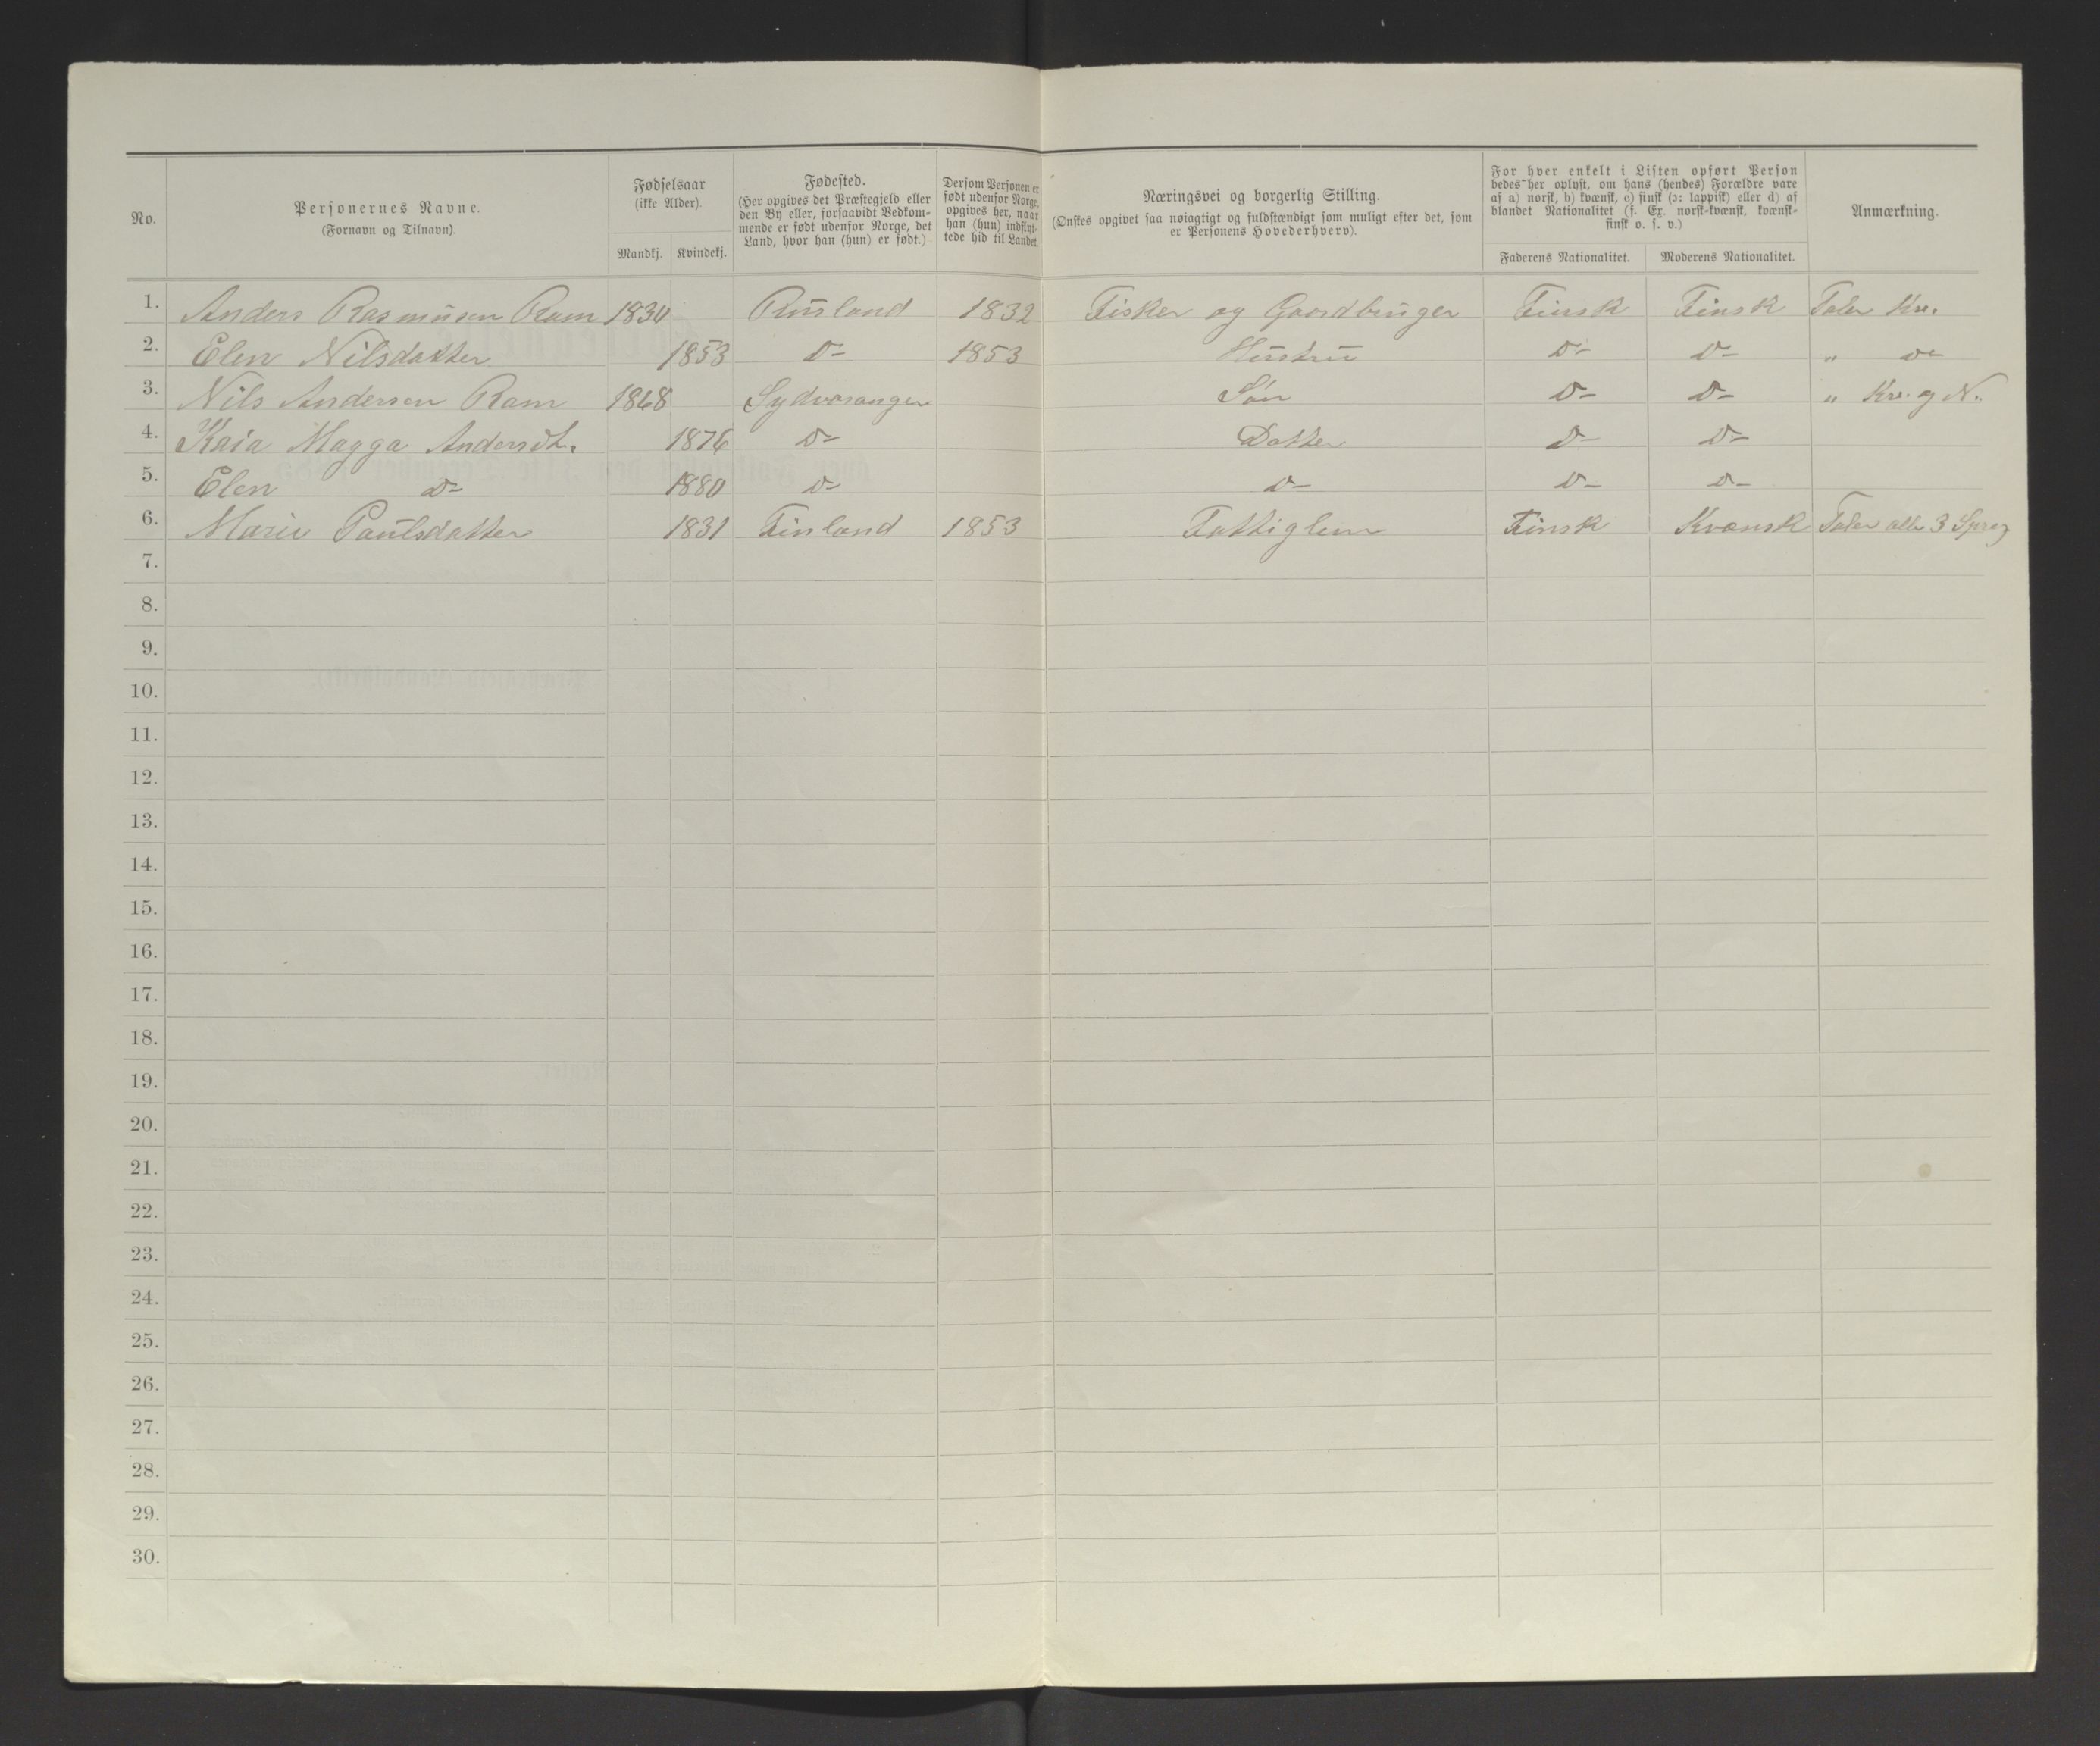 No.
Personernes Navne.
(Fornavn og Tilnavn).
Fødselsaar
(ikke Alder).
Mandkj. Kvindekj.
Fødested.
(Her opgives det Præstegjeld eller
den By eller, forsaavidt Vedkom-
mende er født udenfor Norge, det
Land, hvor han (hun) er født.)
Dersom Personen er
født udenfor Norge,
opgives her, naar
han (hun) indflyt-
tede hid til Landet.
Næringsvei og borgerlig Stilling.
(Ønskes opgivet saa nøiagtigt og fuldstændigt som muligt efter det, som
er Personens Hovederhverv).
For hver enkelt i Listen opført Person
bedes her oplyst, om hans (hendes) Forældre vare
af a) norsk, b) kvænsk, c) finsk (ɔ: lappisk) eller d) af
blandet Nationalitet (f. Ex. norsk-kvænsk, kvænsk-
finsk o. s. v.)
Faderens Nationalitet. Moderens Nationalitet.
Anmærkning.
1. Anders Rasmusen Ram 1830 Rusland 1832 Fisker og Gaardbruger Finsk Finsk Taler Kv.
2. Elen Nilsdatter 1853 D- 1853 Hustru D- D- " D-
3. Nils Andersen Ram 1868 Sydvaranger Søn D- D- " Kv. og N.
4. Kaia Magga Andersdt. 1876 D- Datter D- D-
5. Elen D- 1880 D- D- D- D-
6. Marie Paulsdatter 1831 Finland 1853 Fattiglem Finsk Kvænsk Taler alle 3 Sprog
7.
8.
9.
10.
11.
12.
13.
14.
15.
16.
17.
18.
19.
20.
21.
22.
23.
24.
25.
26.
27.
28.
29.
30.